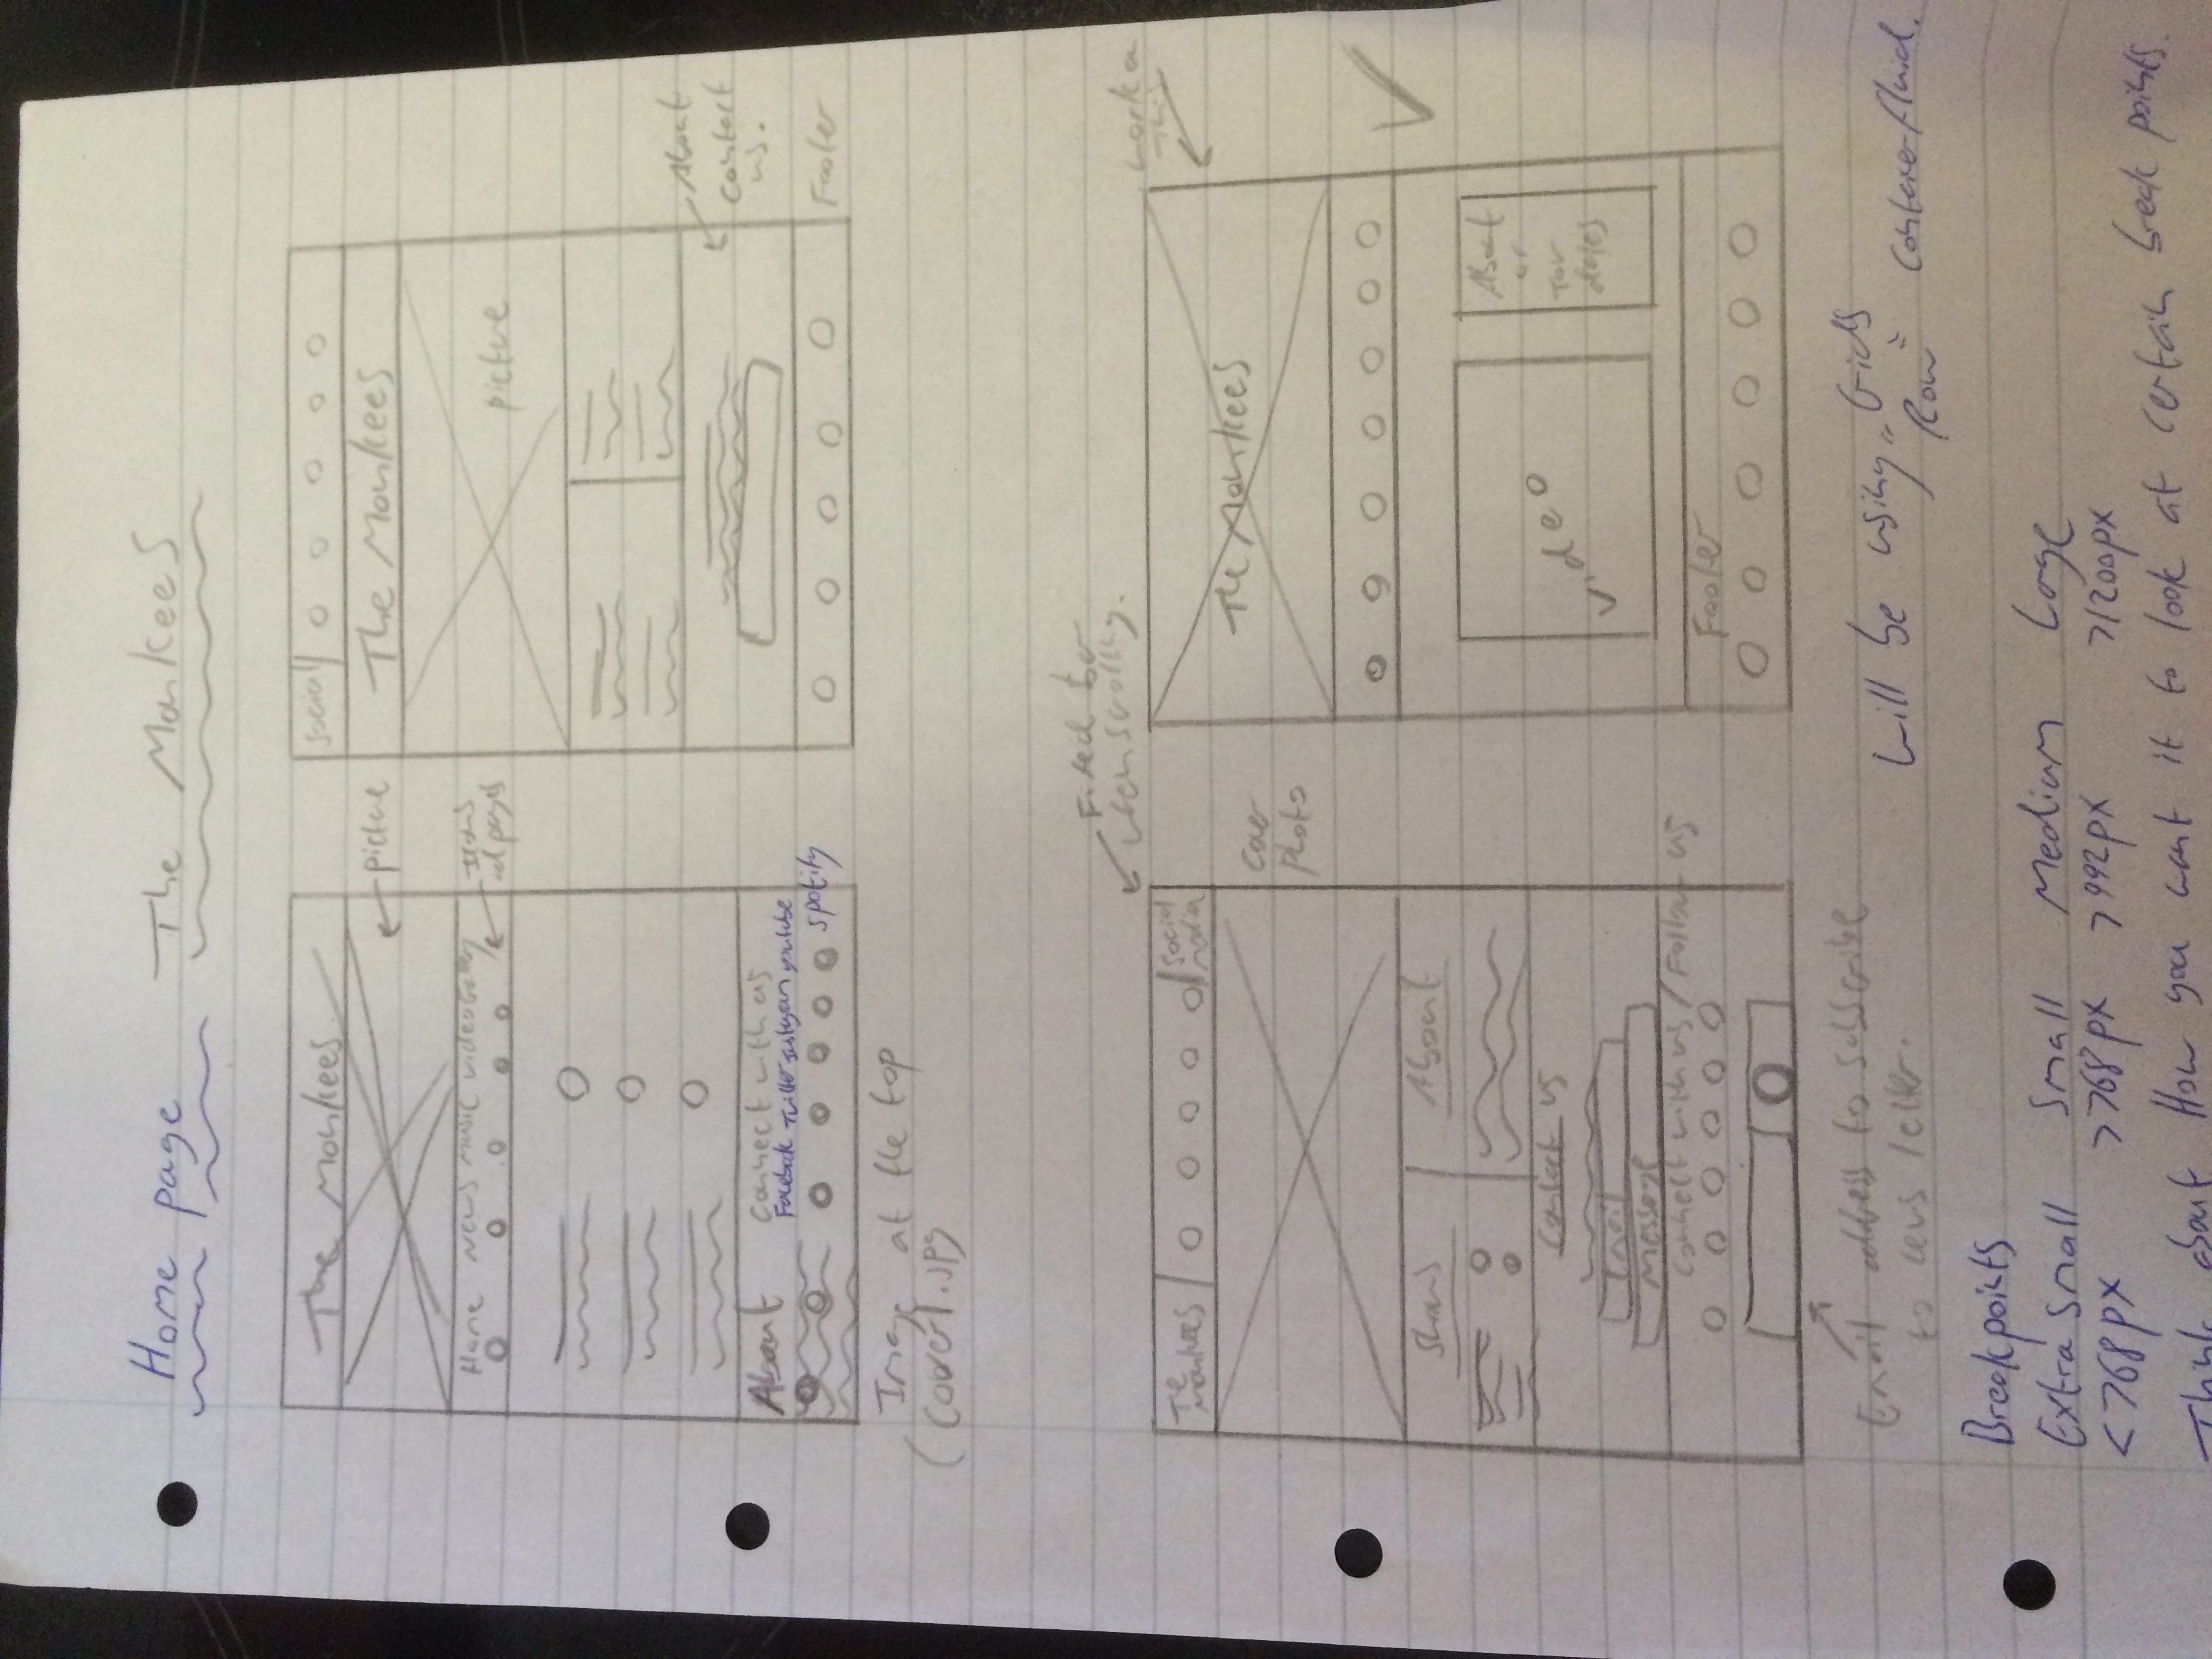 Home page The Monkees
The Monkees
picture
Home News Music videos
Icons
About
connect with us
Facebook Twitter youtube
spotify
Image at the top
(cover1.jpg
social
The Monkees
picture
About
contact
us.
Footer
Fixed
when scrolling.
The
Monkees
social
media
cover
photo
Shows
About
Contact us
Email
Message
connect with us / Follow us
Email address to subscribe
to news letter.
The Monkees
work on
this
Video
About
or
tour
dates
Footer
Will be using "Grids container-fluid.
Row"
Breakpoints
Extra Small Small Medium Large
<768px >768px >992px >1200px
Think about How you want it to look at certain break points.